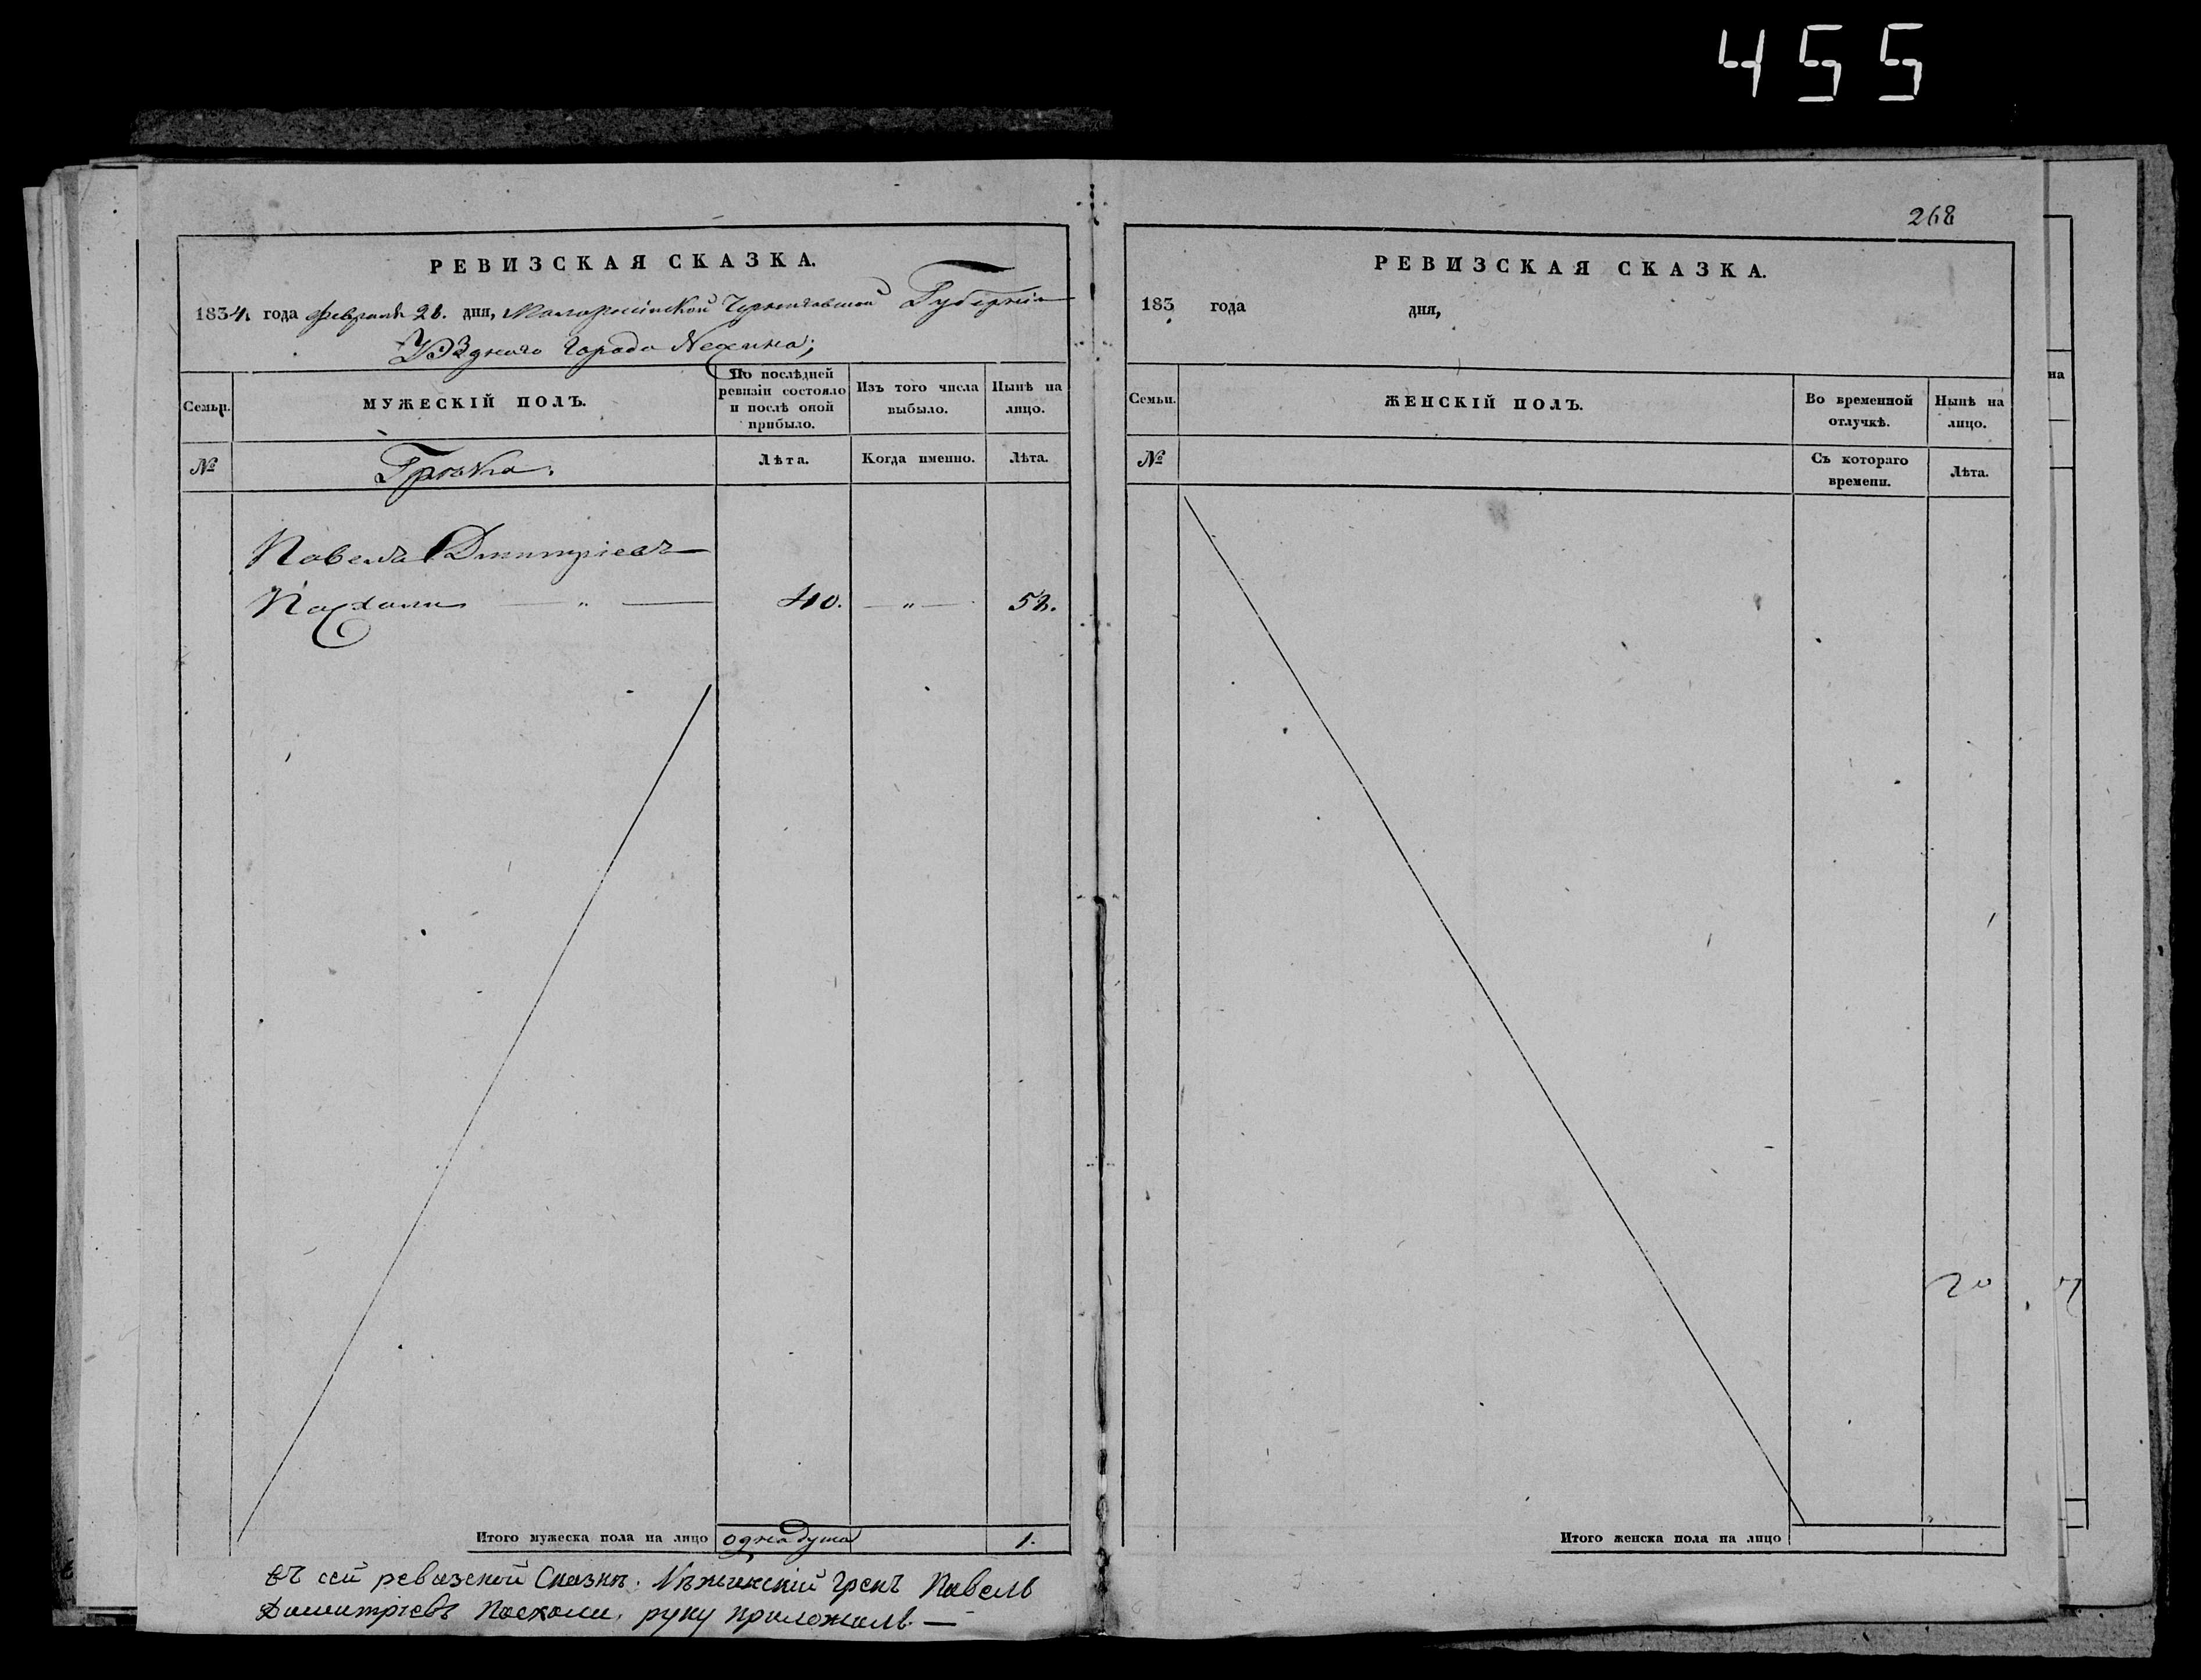 455
РЕВИЗСКАЯ СКАЗКА.
1834. года февраля 28. дня, Малороссійской Черниговской Губерніи
Уѣзднаго города Нежина;
Семьи.
МУЖЕСКІЙ ПОЛЪ.
По послѣдней ревизіи состояло и послѣ оной прибыло.
Изъ того числа выбыло.
Нынѣ на лицо.
№
Грека.
Лѣта.
Когда именно.
Лѣта.
Павелъ Дмитріевъ
Пасхали — „ — 40. — „ — 52.
Итого мужеска пола на лицо одна душа 1.
Въ сей ревизской Сказкѣ. Нѣжинскій грекъ Павелъ
Димитріевъ Пасхали, руку приложилъ —
268
РЕВИЗСКАЯ СКАЗКА.
183 года дня,
Семьи.
ЖЕНСКІЙ ПОЛЪ.
Во временной отлучкѣ.
Нынѣ на лицо.
№
Съ котораго времени.
Лѣта.
Итого женска пола на лицо
на